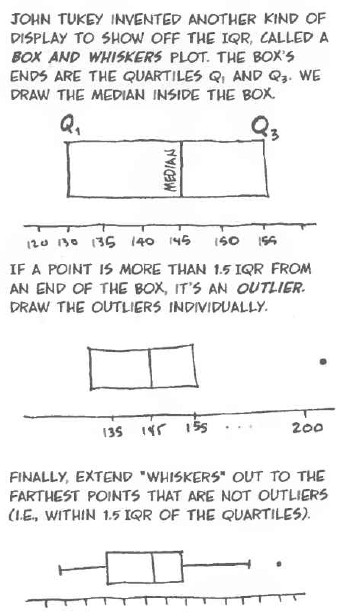 JOHN TUKEY INVENTED ANOTHER KIND OF
DISPLAY TO SHOW OFF THE IQR, CALLED A
BOX AND WHISKERS PLOT. THE BOX'S
ENDS ARE THE QUARTILES Q1 AND Q3. WE
DRAW THE MEDIAN INSIDE THE BOX.
Q1 Q3
MEDIAN
120 130 135 140 145 150 155
IF A POINT IS MORE THAN 1.5 IQR FROM
AN END OF THE BOX, IT'S AN OUTLIER.
DRAW THE OUTLIERS INDIVIDUALLY.
135 145 155 ... 200
FINALLY, EXTEND "WHISKERS" OUT TO THE
FARTHEST POINTS THAT ARE NOT OUTLIERS
(I.E., WITHIN 1.5 IQR OF THE QUARTILES).